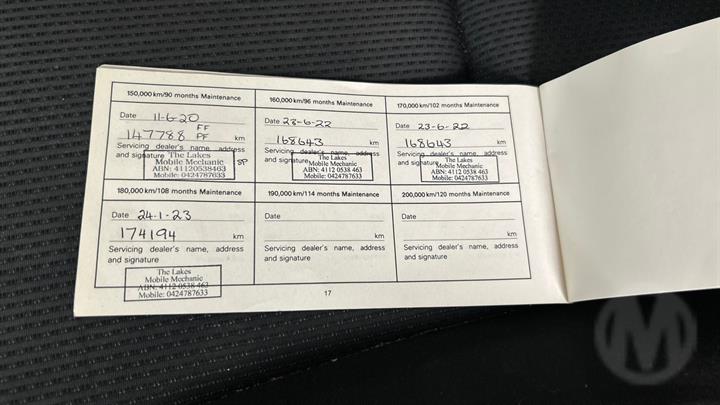 150,000 km/90 months Maintenance
Date 11-6-20
FF
147788 PF km
Servicing dealer's name, address
and signature The Lakes
Mobile Mechanic SP
ABN: 41120538463
Mobile: 0424787633
160,000 km/96 months Maintenance
Date 23-6-22
168643 km
Servicing dealer's name, address
and signature The Lakes
Mobile Mechanic
ABN: 4112 0538 463
Mobile: 0424787633
170,000 km/102 months Maintenance
Date 23-6-22
168643 km
Servicing dealer's name, address
and signature The Lakes
Mobile Mechanic
ABN: 4112 0538 463
Mobile: 0424787633
180,000 km/108 months Maintenance
Date 24-1-23
174194 km
Servicing dealer's name, address
and signature
The Lakes
Mobile Mechanic
ABN: 4112 0538 463
Mobile: 0424787633
190,000 km/114 months Maintenance
Date
km
Servicing dealer's name, address
and signature
200,000 km/120 months Maintenance
Date
km
Servicing dealer's name, address
and signature
17
M